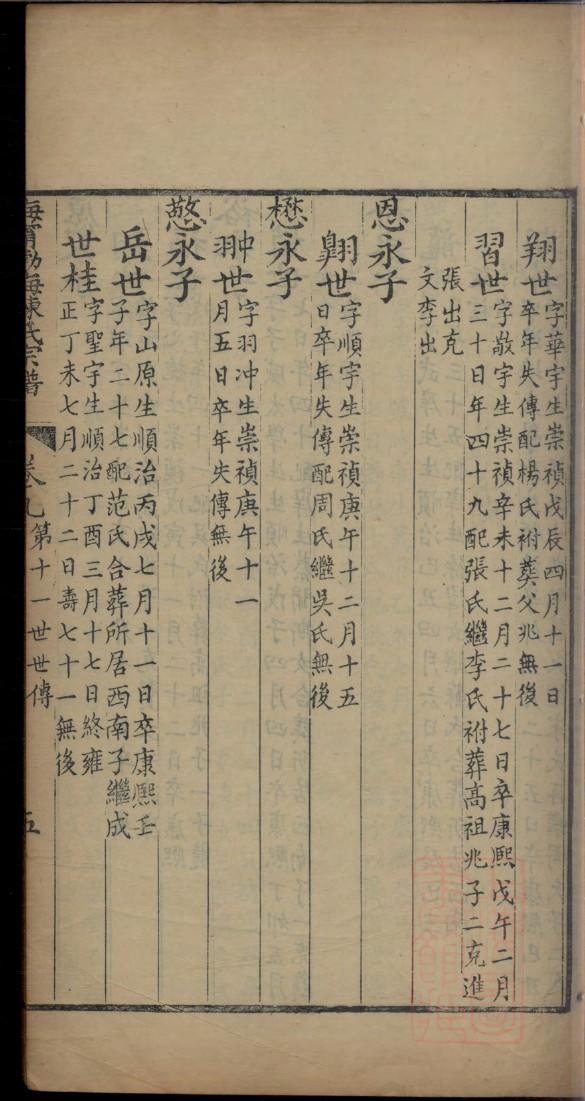 翔世字華宇生崇禎戊辰四月十一日
卒年失傳配楊氏祔葬父兆無後
習世字敬宇生崇禎辛未十二月二十七日卒康熙戊午二月
三十日年四十九配張氏繼李氏祔葬高祖兆子二克進
張出克
文李出
恩永子
翺世字順宇生崇禎庚午十二月十五
日卒年失傳配周氏繼吳氏無後
懋永子
翀世字羽冲生崇禎庚午十一
月五日卒年失傳無後
憗永子
岳世字山原生順治丙戌七月十一日卒康熙壬
子年二十七配范氏合葬所居西南子繼成
世桂字聖宇生順治丁酉三月十七日終雍
正丁未七月二十二日壽七十一無後
海寧渤海陳氏宗譜
卷九第十一世世傳
五